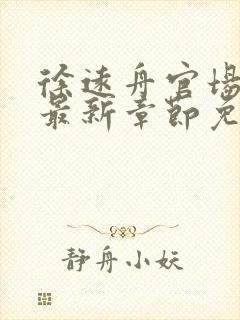 徐远舟官场
最新章节免
静舟小妖